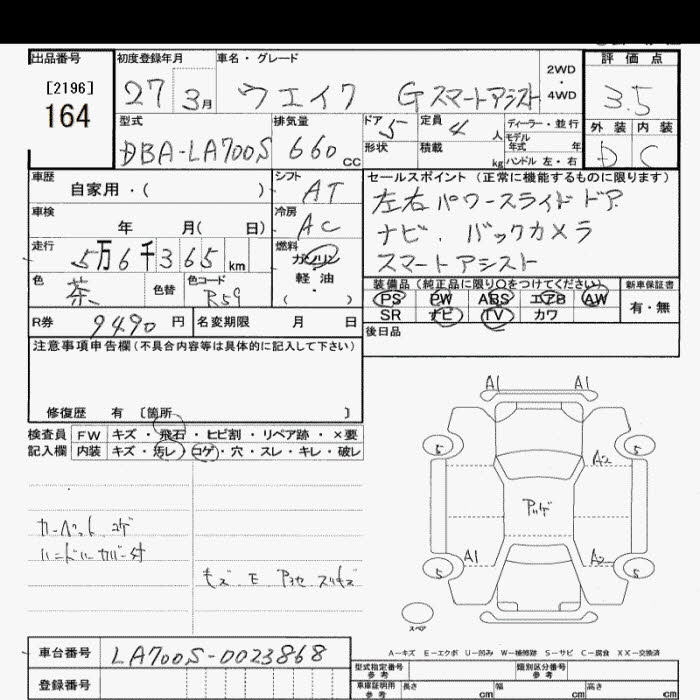 出品番号 初度登録年月 車名・グレード 評価点
[2196] 2WD
164 27 3月 ウエイク Gスマートアシスト ・ 4WD 3.5
型式 排気量 ドア 5 定員 4 人 ディーラー・並行 外装 内装
モデル
DBA-LA700S 660 cc 形状 積載 kg 年式 年 D C
ハンドル 左・右
車歴 シフト セールスポイント (正常に機能するものに限ります)
自家用・( ) AT 左右パワースライドドア
車検 冷房
年 月( 日) AC ナビ. バックカメラ
走行 燃料
5万6千365 km ガソリン スマートアシスト
色 色替 色コード 軽油 装備品 (純正品に限り〇をつけてください) 新車保証書
茶 R59 ( ・ ) PS PW ABS エアB AW 有・無
R券 9490 円 名変期限 月 日 SR ナビ TV カワ
注意事項申告欄 (不具合内容等は具体的に記入して下さい) 後日品
修復歴 有 〔箇所 〕
検査員 FW キズ・飛石・ヒビ割・リペア跡・×要
記入欄 内装 キズ・汚レ・コゲ・穴・スレ・キレ・破レ
A1 A1
5 5
A2
カーペット コゲ
A1 A2
5 5
スペア
A-キズ E-エクボ U-凹み W-補修跡 S-サビ C-腐食 XX-交換済
車台番号 LA700S-0023868 型式指定番号 参考 類別区分番号 参考
登録番号 車庫証明用 参考 長さ cm 幅 cm 高さ cm